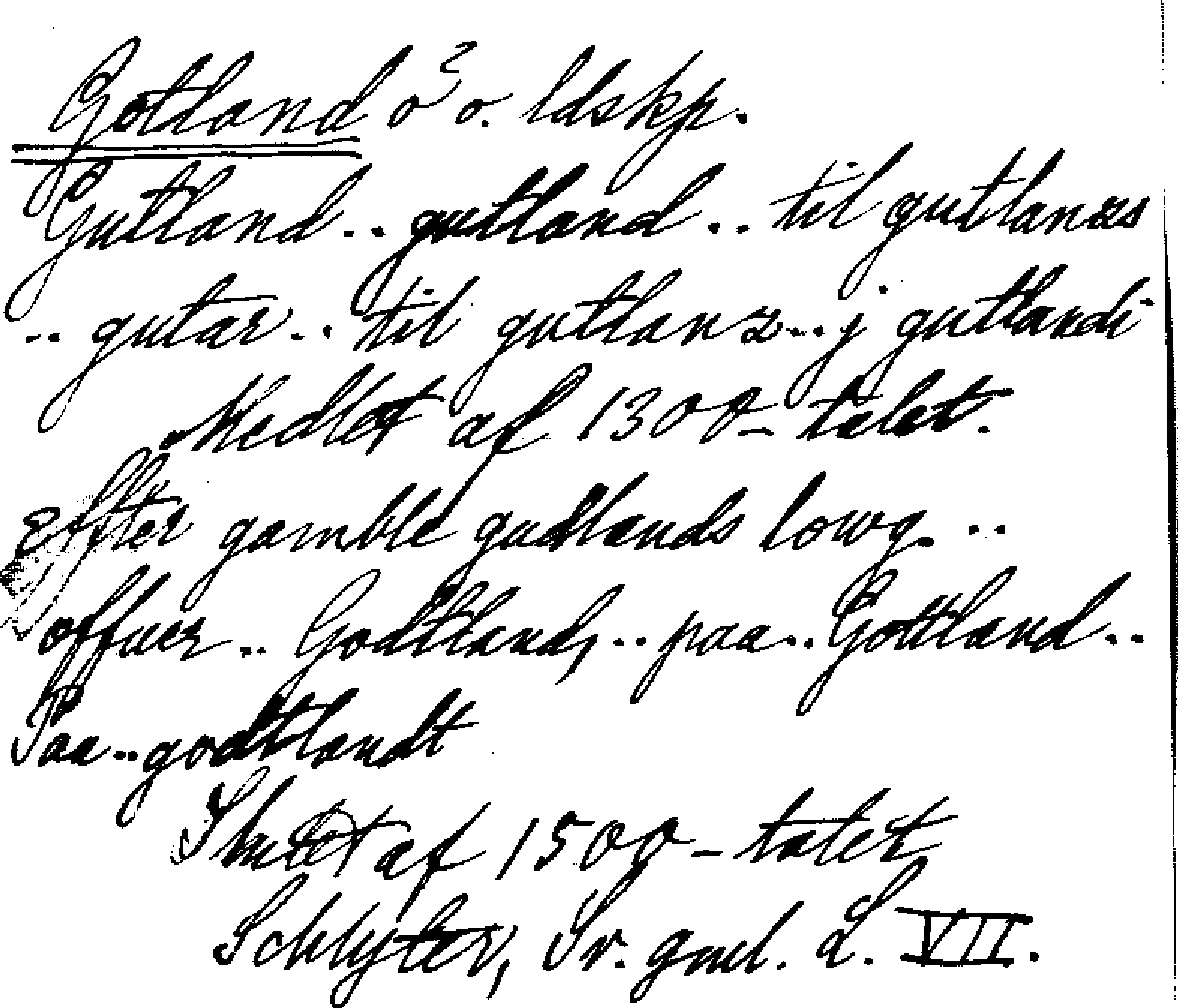 Gotland ö o. ldskp.
Gutland .. gutland .. til gutlanzs
.. gutar .. til gutlanz .. j gutlandi
Medlet af 1300-talet.
Effter gamble gudlands lowg ..
offuer .. Godtland, .. paa .. Gottland ..
Paa .. godtlandt
Slutet af 1500-talet
Schlyter, Sv. gml. L. VII.